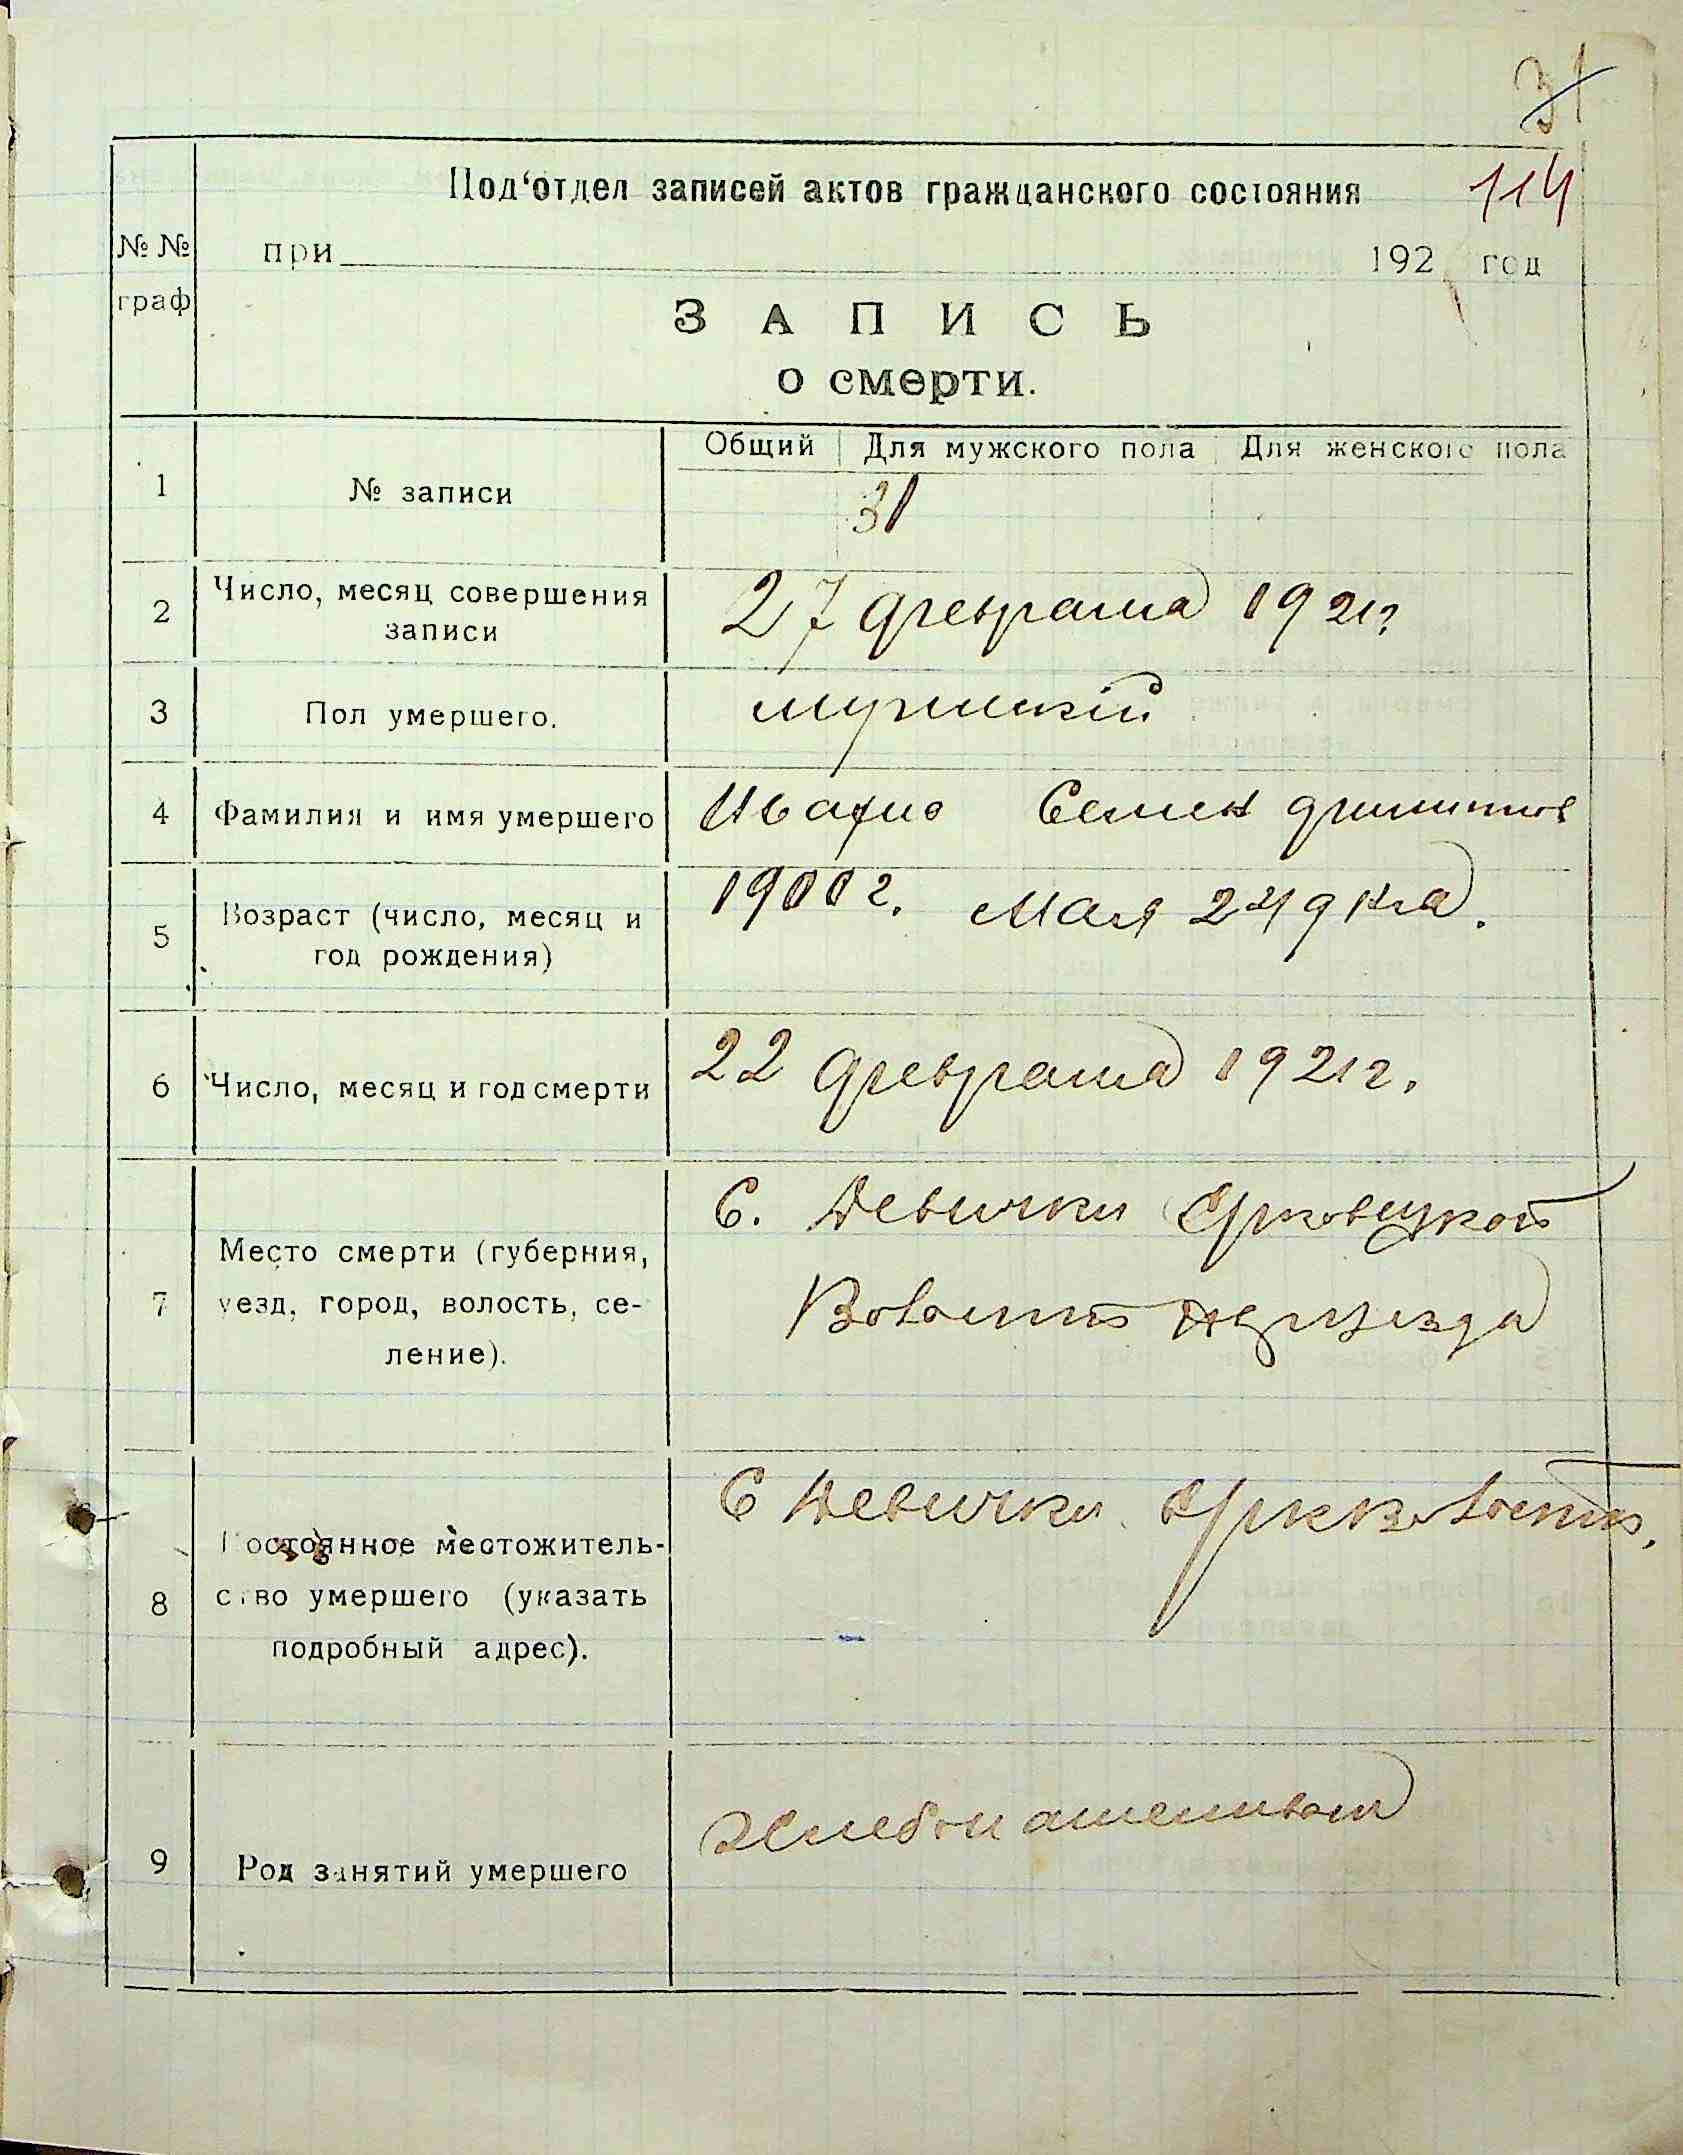 31
114
Под‘отдел записей актов гражданского состояния
№ №
граф
при 192 год
ЗАПИСЬ
о смерти.
Общий Для мужского пола Для женского пола
1 № записи 31
2 Число, месяц совершения
записи
27 февраля 1921г
3 Пол умершего. мужский
4 Фамилия и имя умершего Семен
5 Возраст (число, месяц и
год рождения)
1900 г. Мая 24 дня.
6 Число, месяц и год смерти 22 февраля 1921г.
7 Место смерти (губерния,
уезд, город, волость, се-
ление).
С. Девички Ерковецкой
Волости уезда
8 Постоянное местожитель-
ство умершего (указать
подробный адрес).
С Девички
9 Род занятий умершего